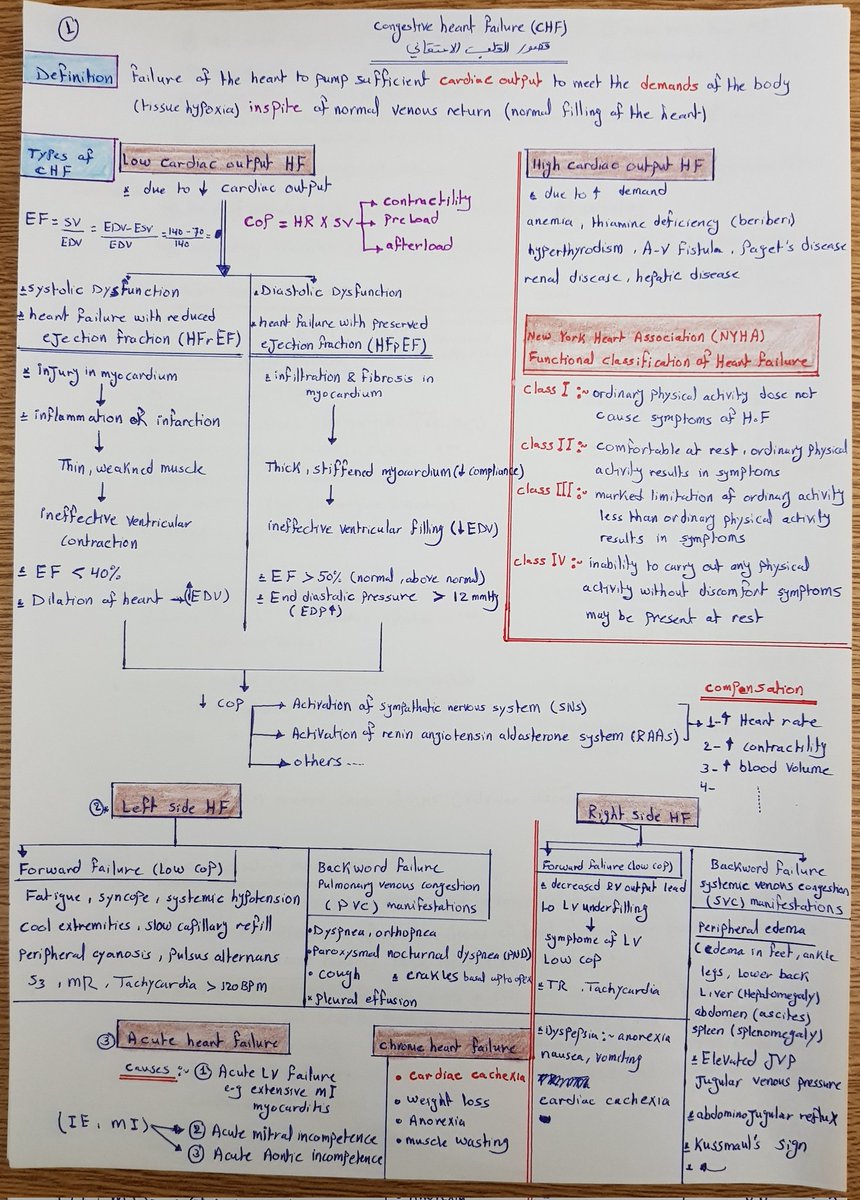 1
Congestive heart failure (CHF)
قصور القلب الاحتقاني
Definition
failure of the heart to pump sufficient cardiac output to meet the demands of the body
(tissue hypoxia) inspite of normal venous return (normal filling of the heart)
Types of
CHF
Low cardiac output HF
* due to ↓ cardiac output
EF = SV/EDV = EDV-ESV/EDV = 140-70/140 =
COP = HR x SV
contractility
preload
afterload
* systolic Dysfunction
* heart failure with reduced
ejection fraction (HFrEF)
* injury in myocardium
* inflammation or infarction
Thin, weakned muscle
ineffective ventricular
contraction
* EF < 40%
* Dilation of heart → (↑EDV)
* Diastolic Dysfunction
* heart failure with preserved
ejection fraction (HFpEF)
* infiltration & fibrosis in
myocardium
Thick, stiffened myocardium (↓ compliance)
ineffective ventricular filling (↓EDV)
* EF > 50% (normal, above normal)
* End diastalic pressure > 12 mmHg
(EDP↑)
High cardiac output HF
* due to ↑ demand
anemia, thiamine deficiency (beriberi)
hyperthyrodism, A-V fistula, Paget's disease
renal disease, hepatic disease
New York Heart Association (NYHA)
Functional classification of Heart failure
class I :- ordinary physical activity dose not
cause symptoms of H.F
class II :- comfortable at rest, ordinary physical
activity results in symptoms
class III :- marked limitation of ordinary activity
less than ordinary physical activity
results in symptoms
class IV :- inability to carry out any physical
activity without discomfort symptoms
may be present at rest
↓ COP
→ Activation of sympathatic nervous system (SNS)
→ Activation of renin angiotensin aldasterone system (RAAS)
→ others ....
compensation
1- ↑ Heart rate
2- ↑ contractility
3- ↑ blood volume
4-
2* Left side HF
Forward failure (Low COP)
Fatigue, syncope, systemic hypotension
cool extremities, slow capillary refill
peripheral cyanosis, pulsus alternans
S3, MR, Tachycardia > 120 BPM
Backword failure
Pulmonary venous congestion
(PVC) manifestations
• Dyspnea, orthopnea
• Paroxysmal nocturnal dyspnea (PND)
• cough * crakles basal up to apex
* Pleural effusion
Right side HF
Forward failure (low COP)
* decreased RV output lead
to LV underfilling
symptome of LV
Low COP
* TR, Tachycardia
* Dyspepsia :- anorexia
nausea, vomiting
cardiac cachexia
Backword failure
systemic venous congestion
(SVC) manifestations
Peripheral edema
(edema in feet, ankle
legs, Lower back
Liver (Hepatomegaly)
abdomen (ascites)
spleen (splenomegaly)
* Elevated JVP
Jugular venous pressure
* abdominojugular reflux
* Kussmaul's sign
3 Acute heart failure
causes :- 1 Acute LV failure
e-g extensive MI
myocarditis
(IE, MI)
2 Acute mitral incompetence
3 Acute Aortic incompetence
chronic heart failure
• cardiac cachexia
• weight loss
• Anorexia
• muscle wasting